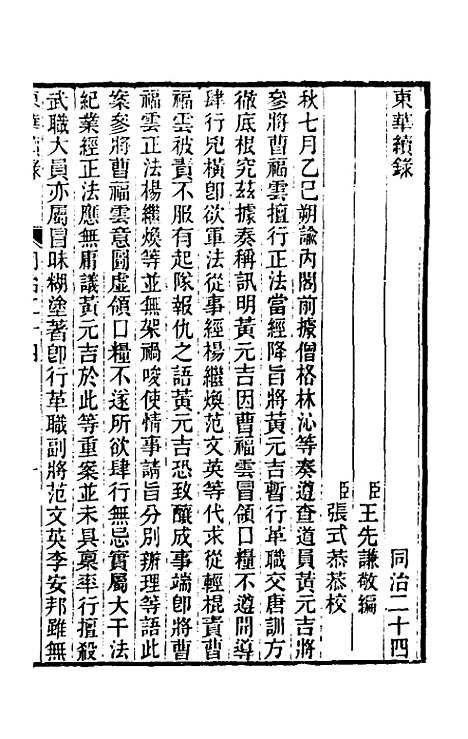 東華續錄
同治二十四
臣王先謙敬編
臣張式恭恭校
秋七月乙巳朔諭內閣前據僧格林沁等奏遵查道員黃元吉將
參將曹福雲擅行正法當經降旨將黃元吉暫行革職交唐訓方
徹底根究茲據奏稱訊明黃元吉因曹福雲冒領口糧不遵開導
肆行兇橫卽欲軍法從事經楊繼煥范文英等代求從輕棍責曹
福雲被責不服有起隊報仇之語黃元吉恐致釀成事端卽將曹
福雲正法楊繼煥等並無架禍唆使情事請旨分別辦理等語此
案參將曹福雲意圖虛領口糧不遂所欲肆行無忌實屬大干法
紀業經正法應無庸議黃元吉於此等重案並未具稟率行擅殺
武職大員亦屬冒昧糊塗著卽行革職副將范文英李安邦雖無